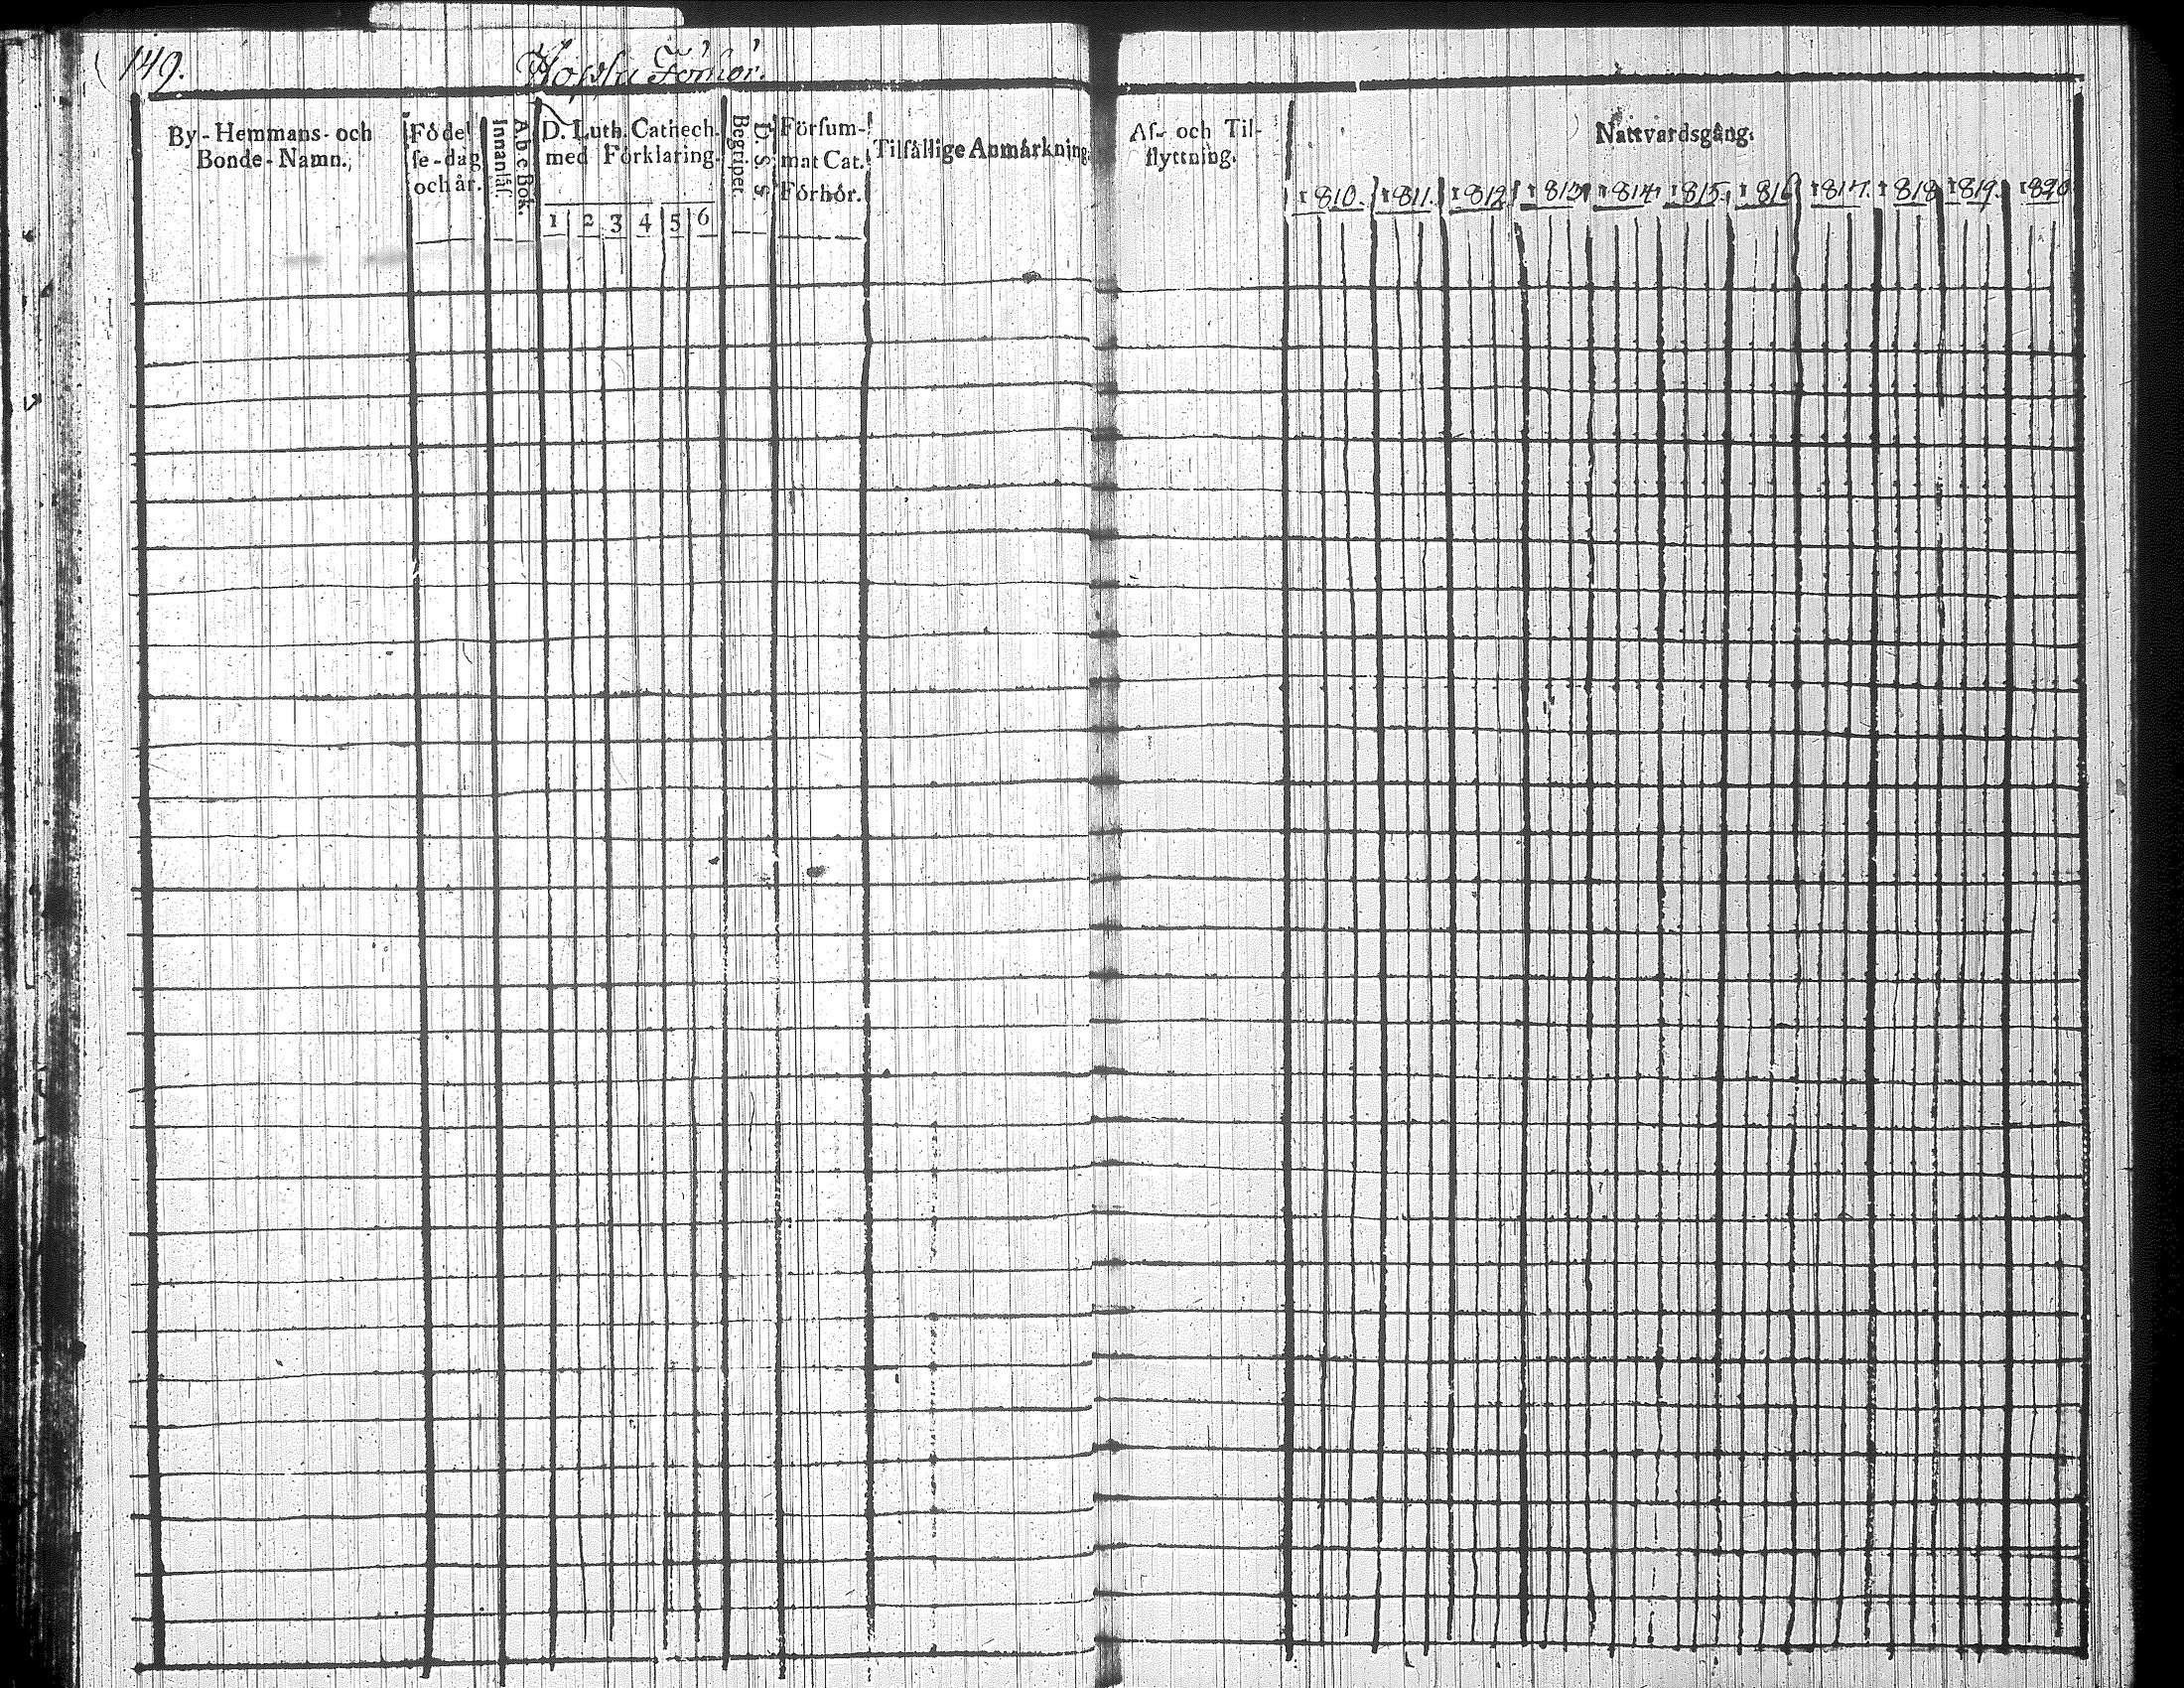 149.
By-Hemmans-och Bonde-Namn.
Födelse-dag och år.
Innanläs.
Ab c Bok.
D. Luth. Cathech. med Förklaring.
1 2 3 4 5 6
Begriper.
D. S. S.
Försummat Cat. Förhör.
Tilfällige Anmärkning.
Af- och Tilflyttning.
Nattvardsgång.
1810. 1811. 1812 1813 1814 1815. 1816 1817. 1818 1819. 1820